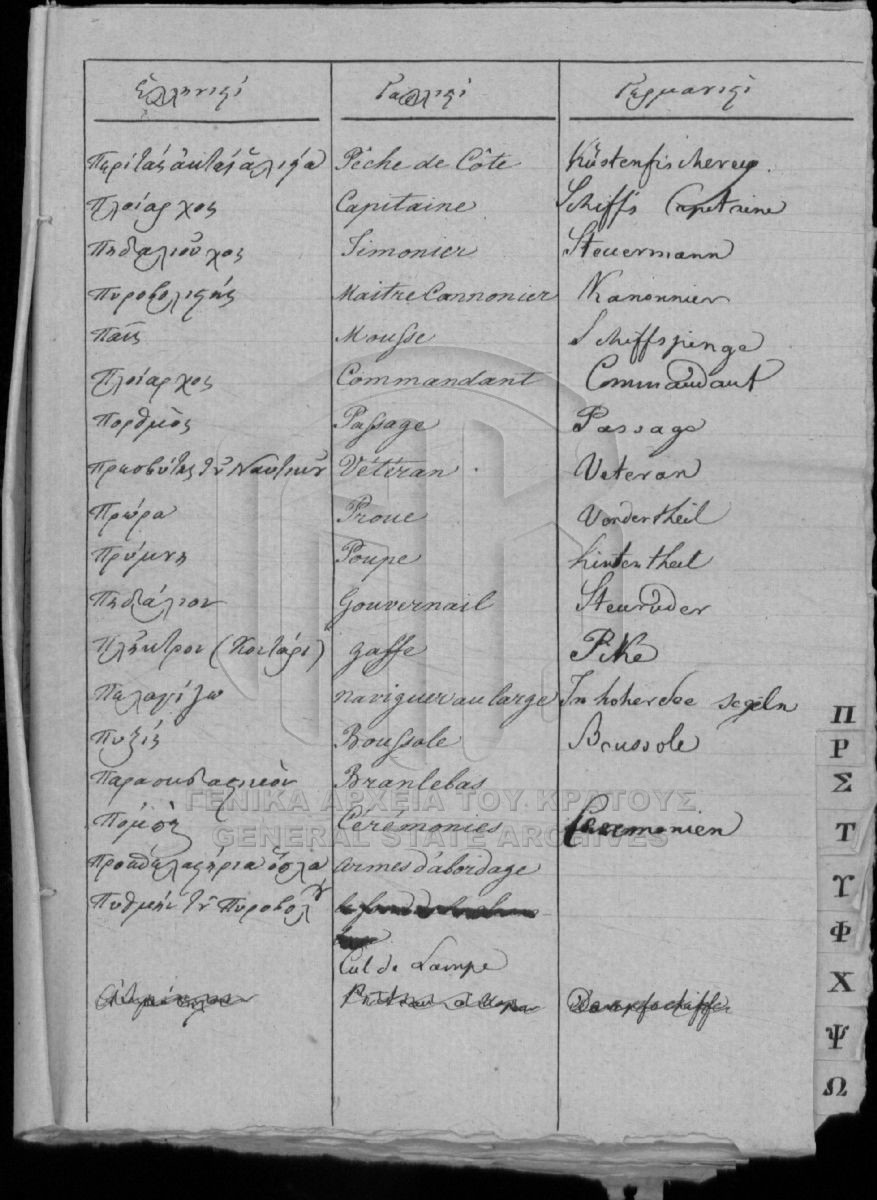 Ἑλληνικὶ Γαλλικὶ Γερμανικὶ
Περὶ τὰς ἀκτὰς ἁλιεία Pêche de Côte Küstenfischerey.
Πλοίαρχος Capitaine Schiffs Capitaine
Πηδαλιοῦχος Timonier Steuermann
Πυροβολιστής Maitre Cannonier Kanonnier
Παῖς Mousse Schiffsjunge
Πλοίαρχος Commandant Commandant
Πορθμὸς Passage Passage
Πρεσβύτης τῶν Ναυτικῶν Vétéran Veteran
Πρώρα Proue Vordertheil
Πρύμνη Poupe hintertheil
Πηδάλιον Gouvernail Steuruder
Πλῆκτρον (Κοντάρι) gaffe Pike
Πελαγίζω naviguer au large In hoher See segeln
Πυξίς Boussole Boussole
Παρασκευαστικὸν Branlebas
Πομπὴ Cérémonies Ceremonien
ὅπλα armes d'abordage
Πυθμὴν τοῦ Πυροβόλου
Cul de Lampe
Π
Ρ
Σ
Τ
Υ
Φ
Χ
Ψ
Ω
ΓΕΝΙΚΑ ΑΡΧΕΙΑ ΤΟΥ ΚΡΑΤΟΥΣ
GENERAL STATE ARCHIVES